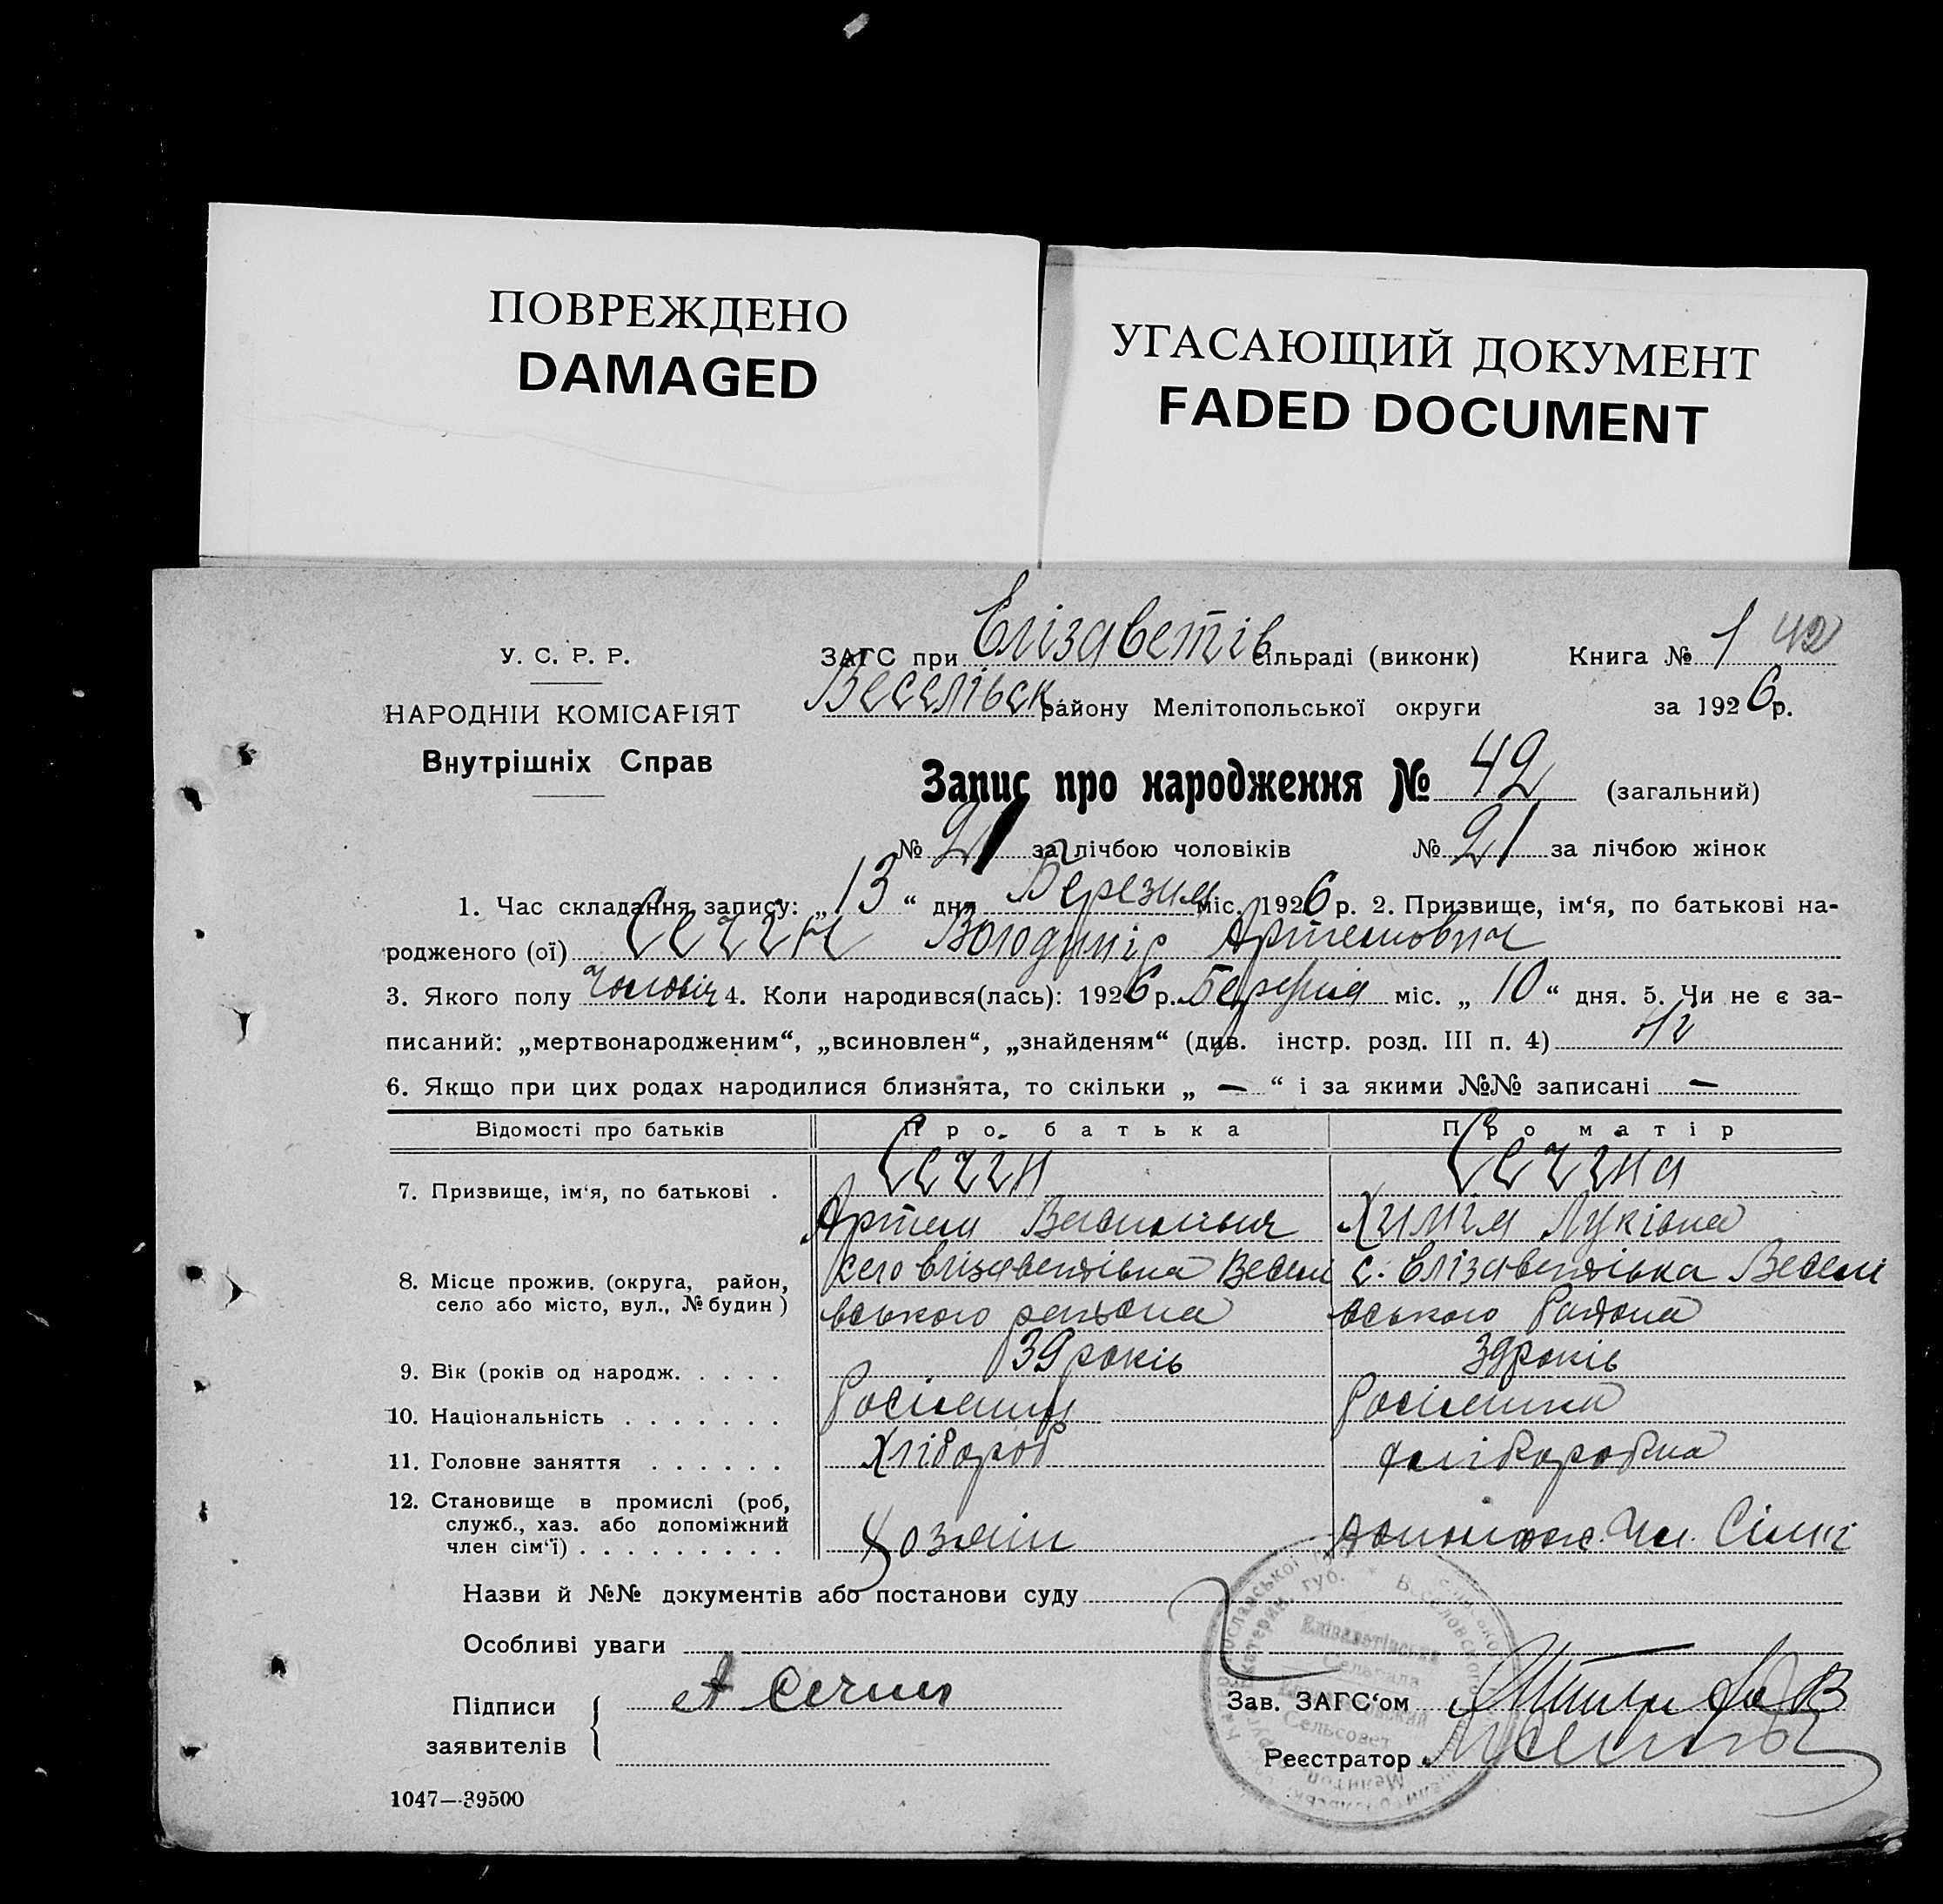 ПОВРЕЖДЕНО
DAMAGED
УГАСАЮЩИЙ ДОКУМЕНТ
FADED DOCUMENT
У. С. Р. Р.
НАРОДНІИ КОМІСАРІЯТ
Внутрішніх Справ
ЗАГС при Єлізаветів сільраді (виконк) Книга № 1 42
Веселівськ району Мелітопольської округи за 1926 р.
Запис про народження № 42 (загальний)
№ 21 за лічбою чоловіків № 21 за лічбою жінок
1. Час складання запису: „13“ дня Березня міс. 1926 р. 2. Призвище, ім‘я, по батькові на-
родженого (ої) Сечін Володимір Артемович
3. Якого полу Чоловіч 4. Коли народився(лась): 1926 р. Березня міс. „10“ дня. 5. Чи не є за-
писаний: „мертвонародженим“, „всиновлен“, „знайденям“ (див. інстр. розд. III п. 4) Ні
6. Якщо при цих родах народилися близнята, то скільки „ — “ і за якими №№ записані —
Відомості про батьків Про батька Про матір
7. Призвище, ім‘я, по батькові . Сечін Сечіна
Артем Васильович Химія Луківна
8. Місце прожив. (округа, район, село або місто, вул., № будин) Село Єлізаветівка Веселі с. Єлізаветівка Веселі
вського района вського Района
9. Вік (років од народж. . . . . 39 років 39 років
10. Національність . . . . . . . Росіянин Росіянка
11. Головне заняття . . . . . . Хлібороб хліборобка
12. Становище в промислі (роб, служб., хаз. або допоміжний член сім‘ї) . . . . . . . . . Хозяїн допомож. чл. Сімї
Назви й №№ документів або постанови суду
Особливі уваги
Підписи заявителів А Сечин
Зав. ЗАГС‘ом
Реєстратор
Єлізаветівська
Сельрада
Сельсовет
1047—39500